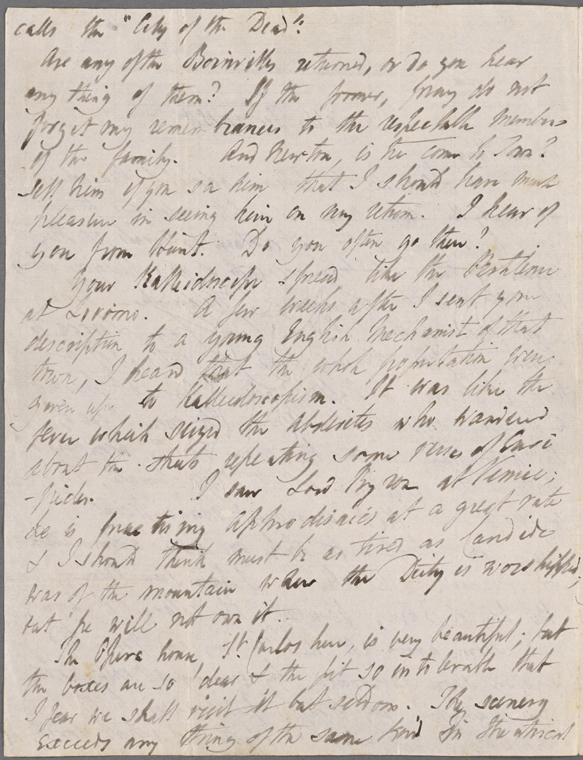 calls the "City of the Dead".
Are any of the Boinvilles returned, or do you hear
any thing of them? If the former, pray do not
forget my remembrances to the respectable members
of the family. And Newton, is he come to Town?
tell him if you see him that I should have much
pleasure in seeing him on my return. I hear of
you from Hunt. Do you often go there?
Your Kalleidoscope spread like the
at Livorno. A few weeks after I sent your
description to a young English mechanist of that
town, I heard that the whole population were
given up to Kalleidoscopism. It was like the
fever which seized the Abderites who wandered
about the streets repeating some verse of Euri
-pides. I saw Lord Byron at Venice;
he is practising aphrodisiacs at a great rate
& I should think must be as tired as Candide
was of the mountain where the Deity is worshipped,
but he will not own it.
The Opera house St. Carlos here, is very beautiful; but
the boxes are so dear & the pit so intolerable that
I fear we shall visit it but seldom. The scenery
exceeds any thing of the same kind in theatrical